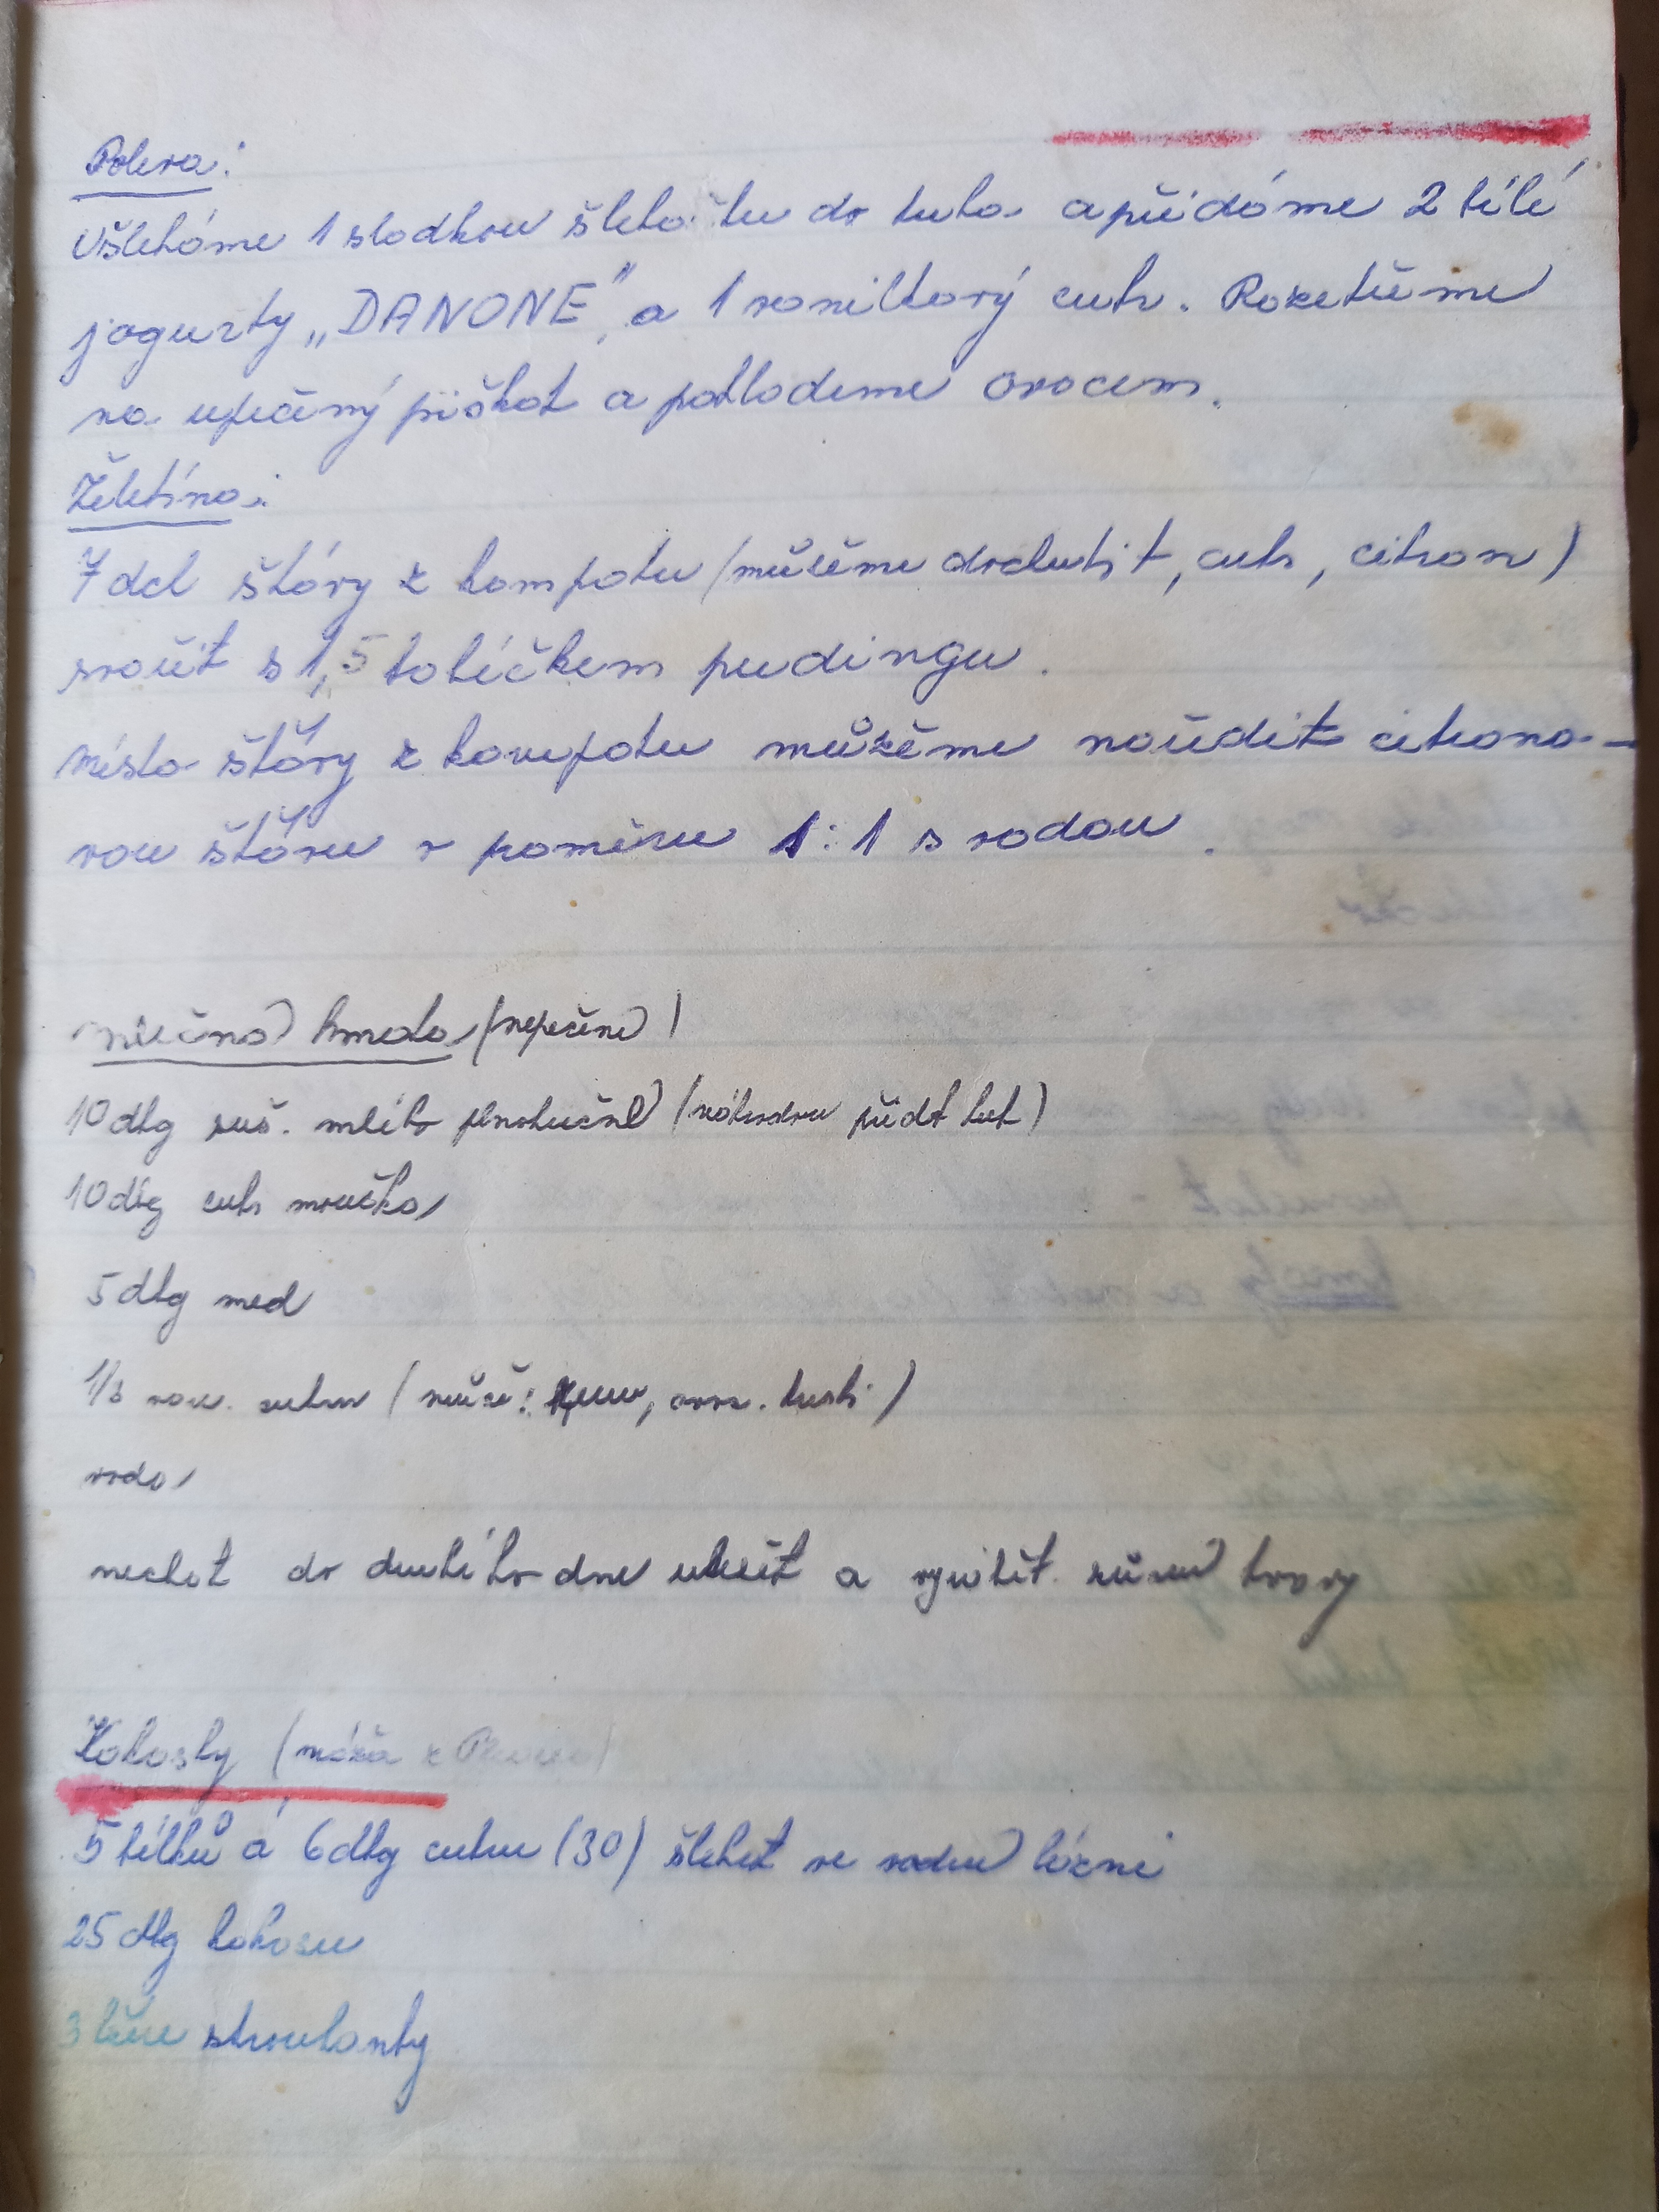 Poleva:
Všleháme 1 sladkou šlehačku do tuha a přidáme 2 bílé
jogurty „DANONE“ a 1 vanilkový cukr. Rozetřeme
na upečený piškot a poklademe ovocem.
Želatina:
7 dcl šťávy z kompotu (můžéme dochutit, cukr, citron)
svařit s 1,5 balíčkem pudingu.
Místo šťávy z kompotu můžéme naředit citrono-
vou šťávu v poměru 1:1 s vodou.
mléčná hmota (nepečené)
10 dkg suš. mléko plnotučné (náhradou přidat tuk)
10 dkg cukr moučka
5 dkg med
1/2 van. cukru (může: rum, ovoc. tresti)
voda
nechat do druhého dne uležet a vyválet různé tvary
Kokosky (máža z
5 bílků á 6 dkg cukru (30) šlehat ve vodní lázni
25 dkg kokosu
3 lžíce strouhanky